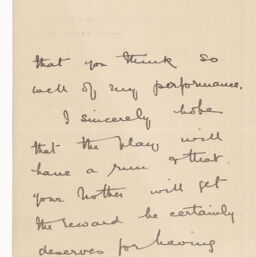 that you think so
well of my performance.
I sincerely hope
that the play will
have a run & that
your Mother will get
the reward he certainly
deserves for having